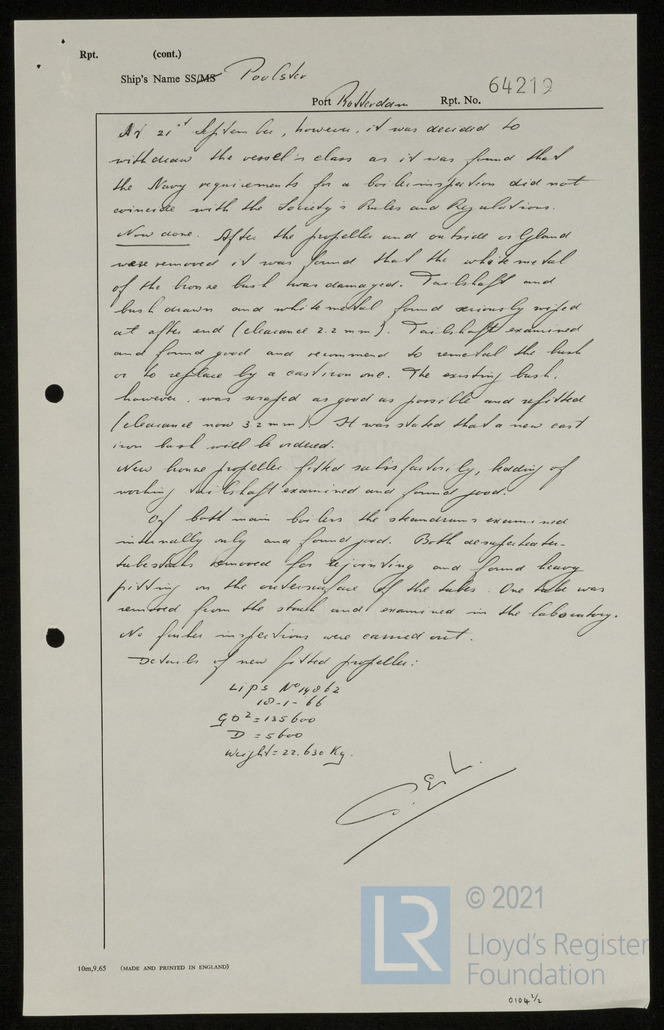 Rpt. (cont.)
Ship's Name SS/MS Poolster
Port Rotterdam Rpt. No. 64219
At 21st September, however, it was decided to
withdraw the vessel's class as it was found that
the Navy requirements for a boilerinspection did not
coincide with the Society's Rules and Regulations.
Now done. After the propeller and outside or Gland
were removed it was found that the whitemetal
of the bronze bush was damaged. Tailshaft and
bush drawn and whitemetal found seriously wiped
at after end (clearance 2.2 mm). Tailshaft examined
and found good and recommend to remetal the bush
or to replace by a cast iron one. The existing bush,
however, was scraped as good as possible and refitted
(clearance now 3.2 mm). It was stated that a new cast
iron bush will be ordered.
New bronze propeller fitted satisfactorily, bedding of
working tailshaft examined and found good.
Of both main boilers the steamdrums examined
internally only and found good. Both desuperheater-
tubestacks removed for rejointing and found heavy
pitting on the outersurface of the tubes. One tube was
removed from the stack and examined in the laboratory.
No further inspections were carried out.
Details of new fitted propeller:
Lips No 14862
18-1-66
GD² = 135600
D = 5600
Weight = 22.630 Kg.
10m,9,65 (MADE AND PRINTED IN ENGLAND)
LR
© 2021
Lloyd's Register
Foundation
0104 1/2